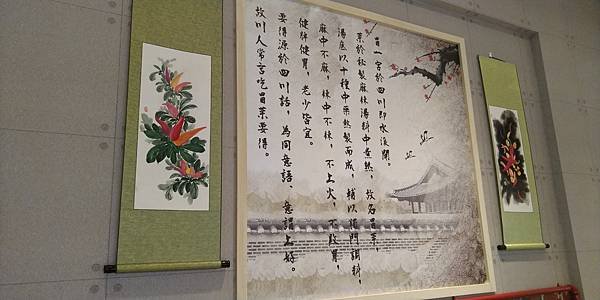 冒一字於四川即水滾開。
菜於秘製麻辣湯料中煮熟，故名冒菜，
湯底以十種中藥熬製而成，輔以獨門調料，
麻中不麻，辣中不辣，不上火，不敗胃，
健脾健胃，老少皆宜。
要得源於四川話，為同意語、意謂上好。
故川人常言吃冒菜要得。